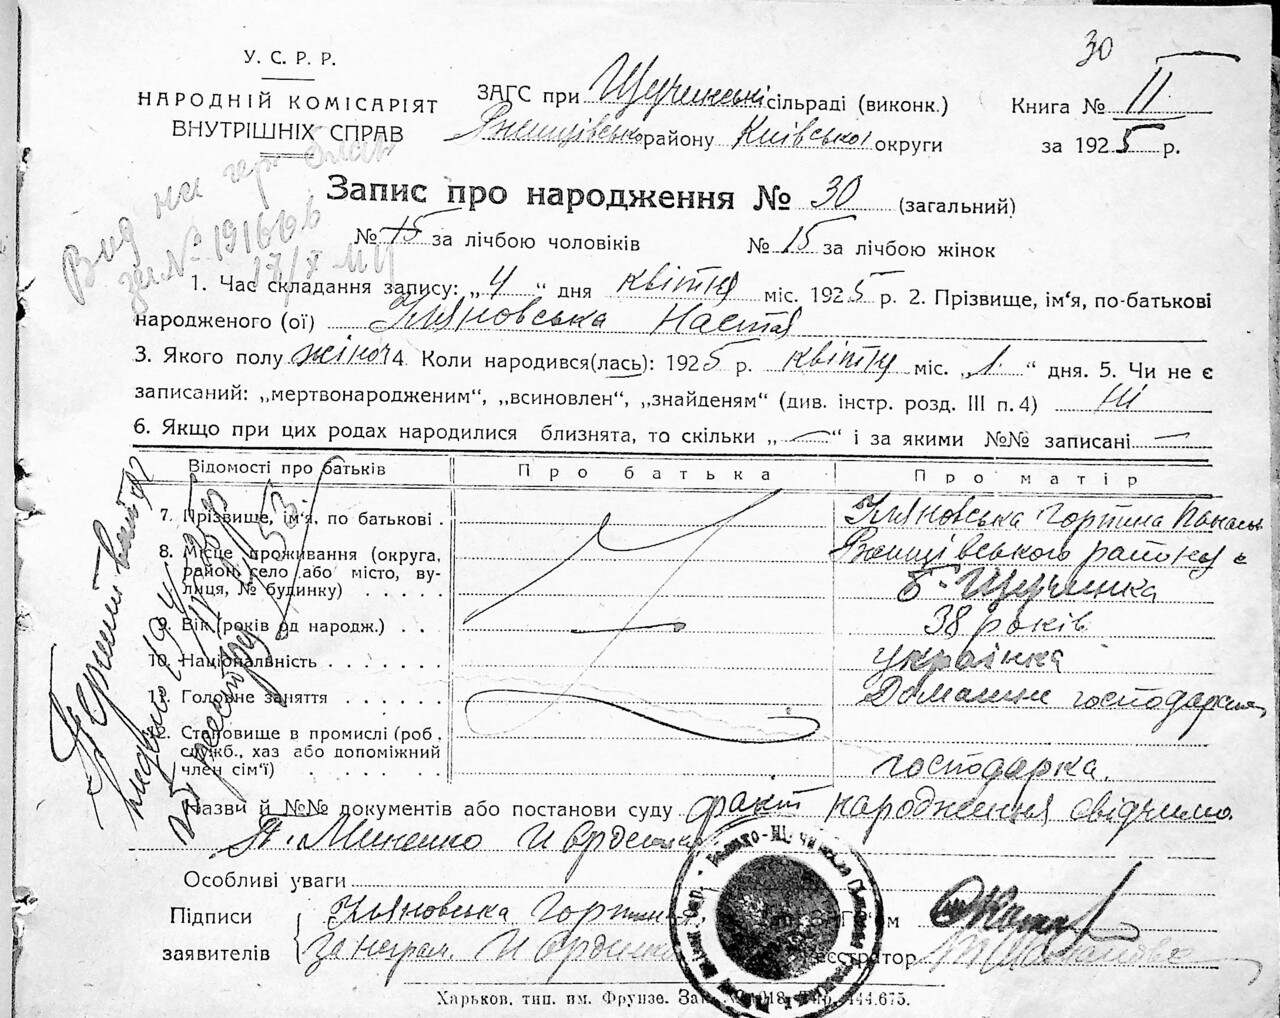 30
У. С. Р. Р.
НАРОДНІЙ КОМІСАРІЯТ
ВНУТРІШНІХ СПРАВ
ЗАГС при Щучинські сільраді (виконк.)
Ржищівсько району Київської округи
Книга № II
за 1925 р.
Вид на
за № 191666
17/X
Запис про народження № 30 (загальний)
№ 15 за лічбою чоловіків № 15 за лічбою жінок
1. Час складання запису: „4“ дня квітня міс. 1925 р. 2. Прізвище, ім‘я, по-батькові
народженого (ої) Уляновська Настя
3. Якого полу жіноч 4. Коли народився(лась): 1925 р. квітня міс. „1.“ дня. 5. Чи не є
записаний: „мертвонародженим“, „всиновлен“, „знайденям“ (див. інстр. розд. III п. 4) Ні
6. Якщо при цих родах народилися близнята, то скільки „—“ і за якими №№ записані —
Відомості про батьків Про батька Про матір
7. Прізвище, ім‘я, по батькові . Уляновська Горпина Панас
8. Місце проживання (округа, Ржищівського району с
район, село або місто, ву-
лиця, № будинку) . . . . . Щучинка
9. Вік (років од народж.) . . 38 років
10. Національність . . . . . українка
11. Головне заняття . . . . . Домашне господарки
12. Становище в промислі (роб.,
служб., хаз або допоміжний
член сім‘ї) . . . . . господарка.
Назви й №№ документів або постанови суду факт народження свідчимо
Миненко И
Особливі уваги
Підписи Уляновська Горпина
заявителів за неграм. И
ЗАГС‘ом
Реєстратор
Харьков, тип. им. Фрунзе. Зак. 444.675.